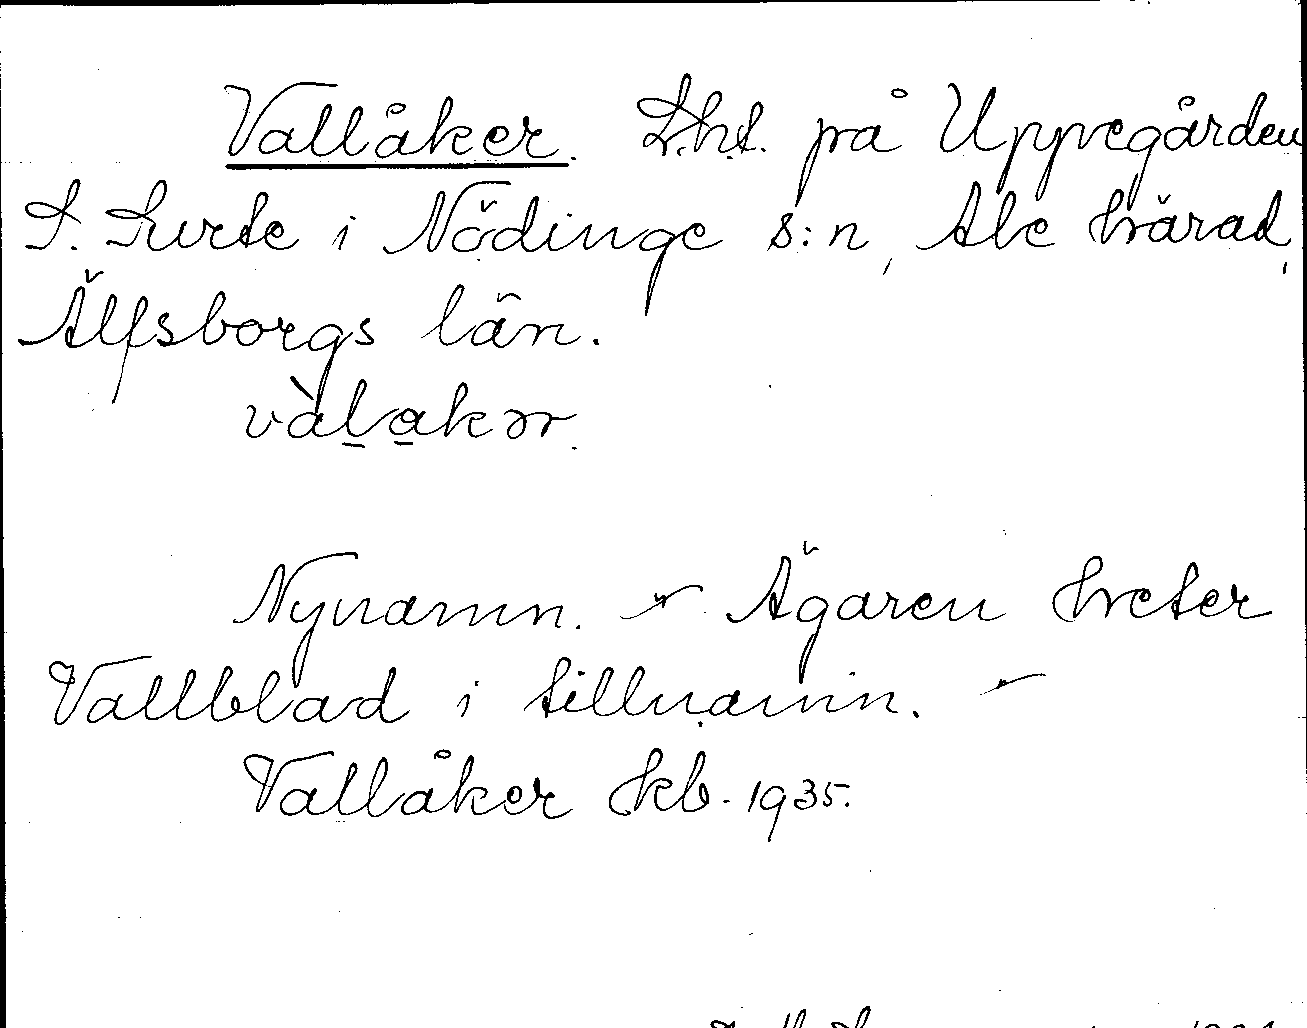 Vallåker. Lht. på Uppegården
S. Surte i Nödinge s:n, Ale härad,
Älfsborgs län.
vàl̠a̠kər.
Nynamn. - Ägaren heter
Vallblad i tillnamn. -
Vallåker Skb. 1935.